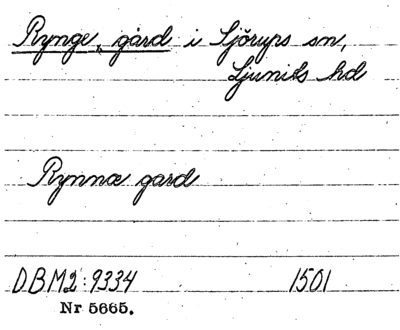 Rynge, gård i Sjörups sn,
Ljunits hd
Rynnæ gard
DBM2:9334 1501
Nr 5665.